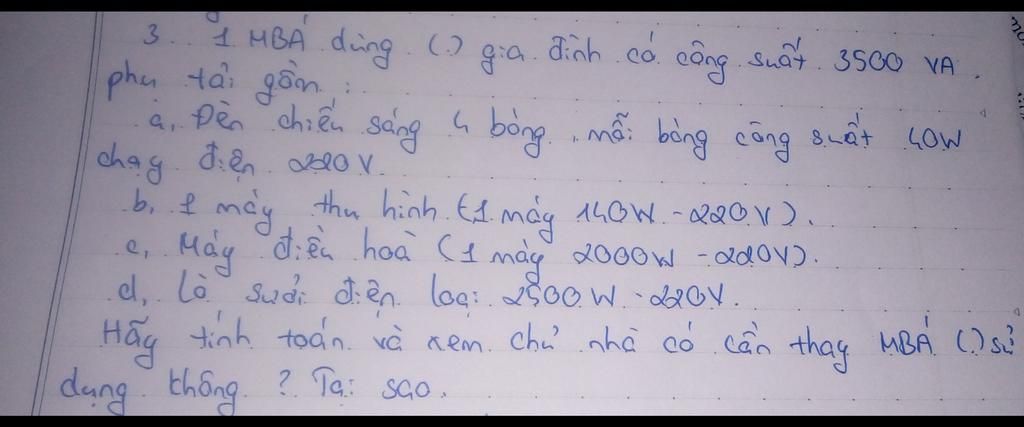 3. 1 MBÁ dùng (.) gia đình có công suất 3500 VA.
phụ tải gồm :
a, Đèn chiếu sáng 4 bóng, mỗi bóng công suất 40W
chạy điện 220V.
b, 1 máy thu hình (1 máy 140W - 220V).
c, Máy điều hoà (1 máy 2000W - 220V).
d, Lò sưởi điện loại 2500W - 220V.
Hãy tính toán và xem chủ nhà có cần thay MBÁ (.) sử
dụng không ? Tại sao.